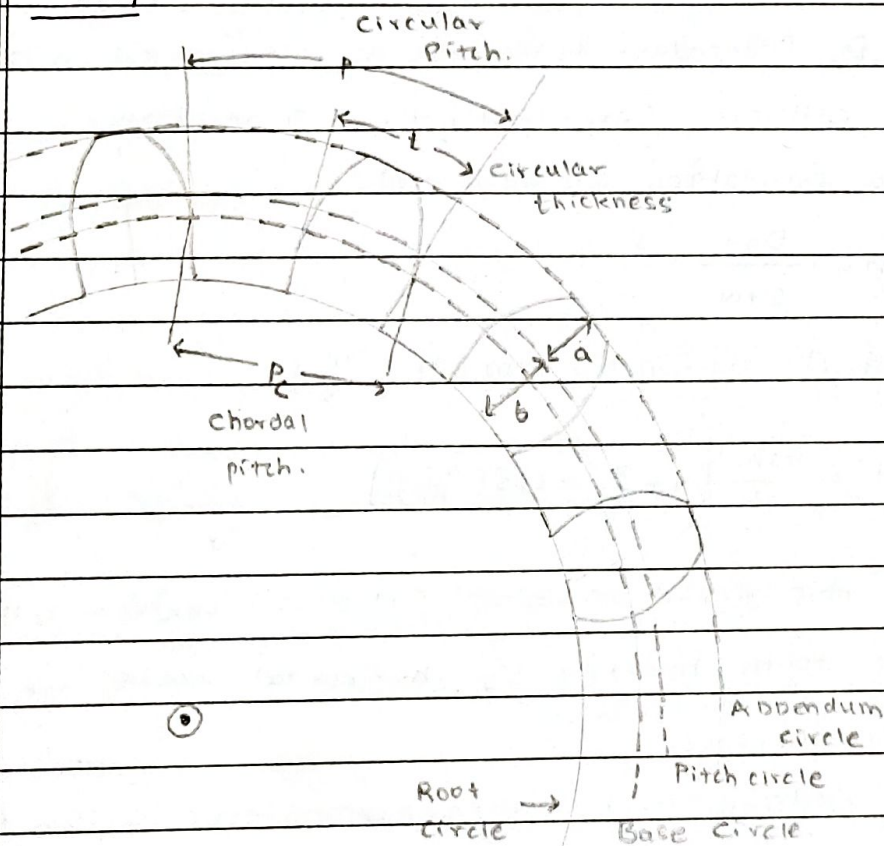 Circular
Pitch.
p
t
Circular
thickness
a
b
Pc
Chordal
pitch.
Addendum
circle
Pitch circle
Root
circle
Base Circle.